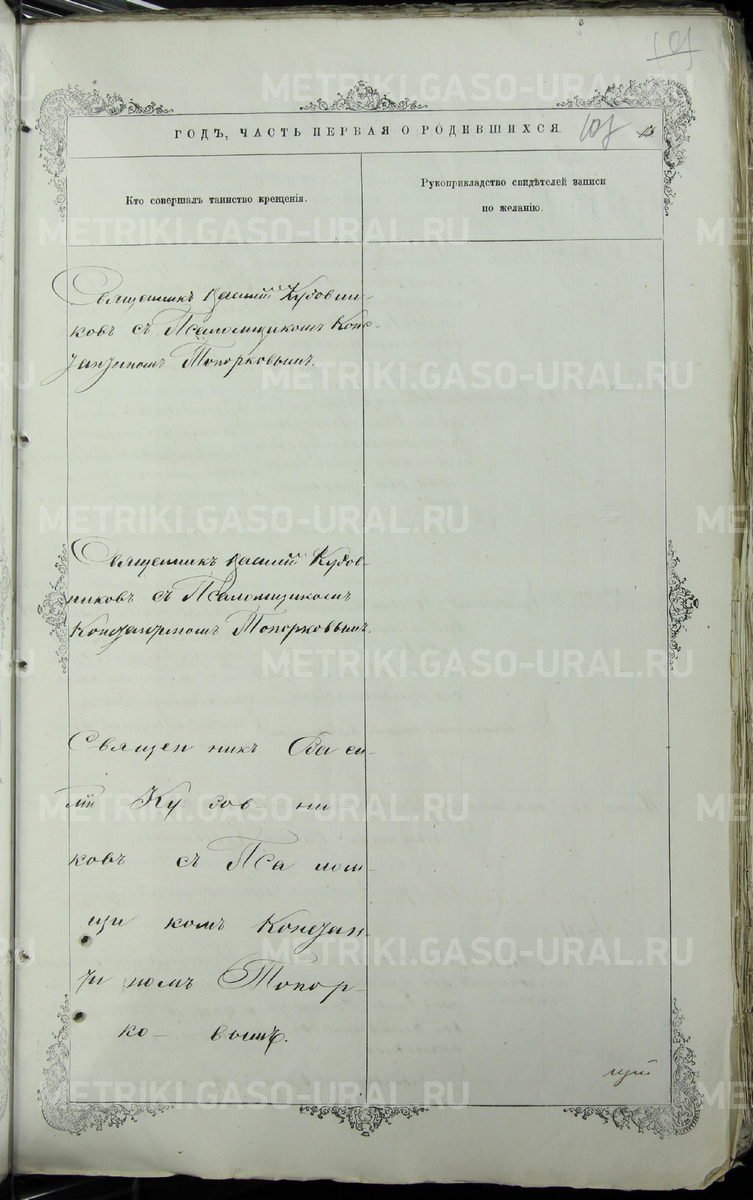 ГОДЪ, ЧАСТЬ ПЕРВАЯ О РОДИВШИХСЯ.
Кто совершалъ таинство крещенія.
Рукоприкладство свидѣтелей записи
по желанію.
Священникъ Василій Кузовни-
ковъ съ Псаломщикомъ Конс-
тантиномъ Топорковымъ.
Священникъ Василій Кузов-
никовъ съ Псаломщикомъ
Константиномъ Топорковымъ.
Священ никъ Васи-
лій Ку зов- ни
ковъ съ Пса лом-
щи комъ Констан-
ти номъ Топор-
ко- вымъ.
METRIKI.GASO-URAL.RU